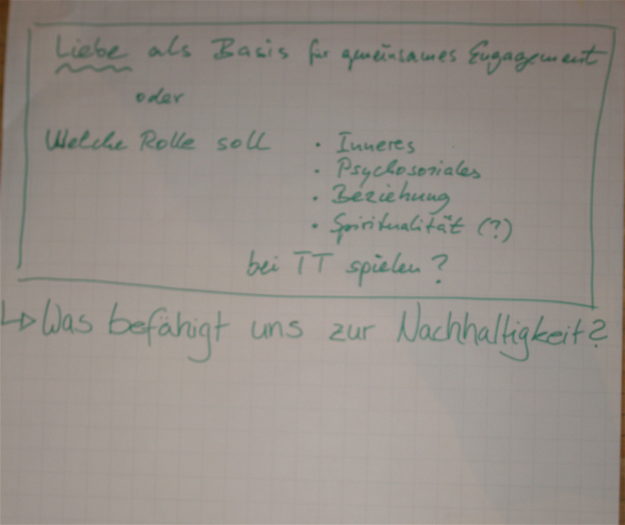 Liebe als Basis für gemeinsames Engagement
oder
Welche Rolle soll
• Inneres
• Psychosoziales
• Beziehung
• Spiritualität (?)
bei TT spielen?
↳ Was befähigt uns zur Nachhaltigkeit?